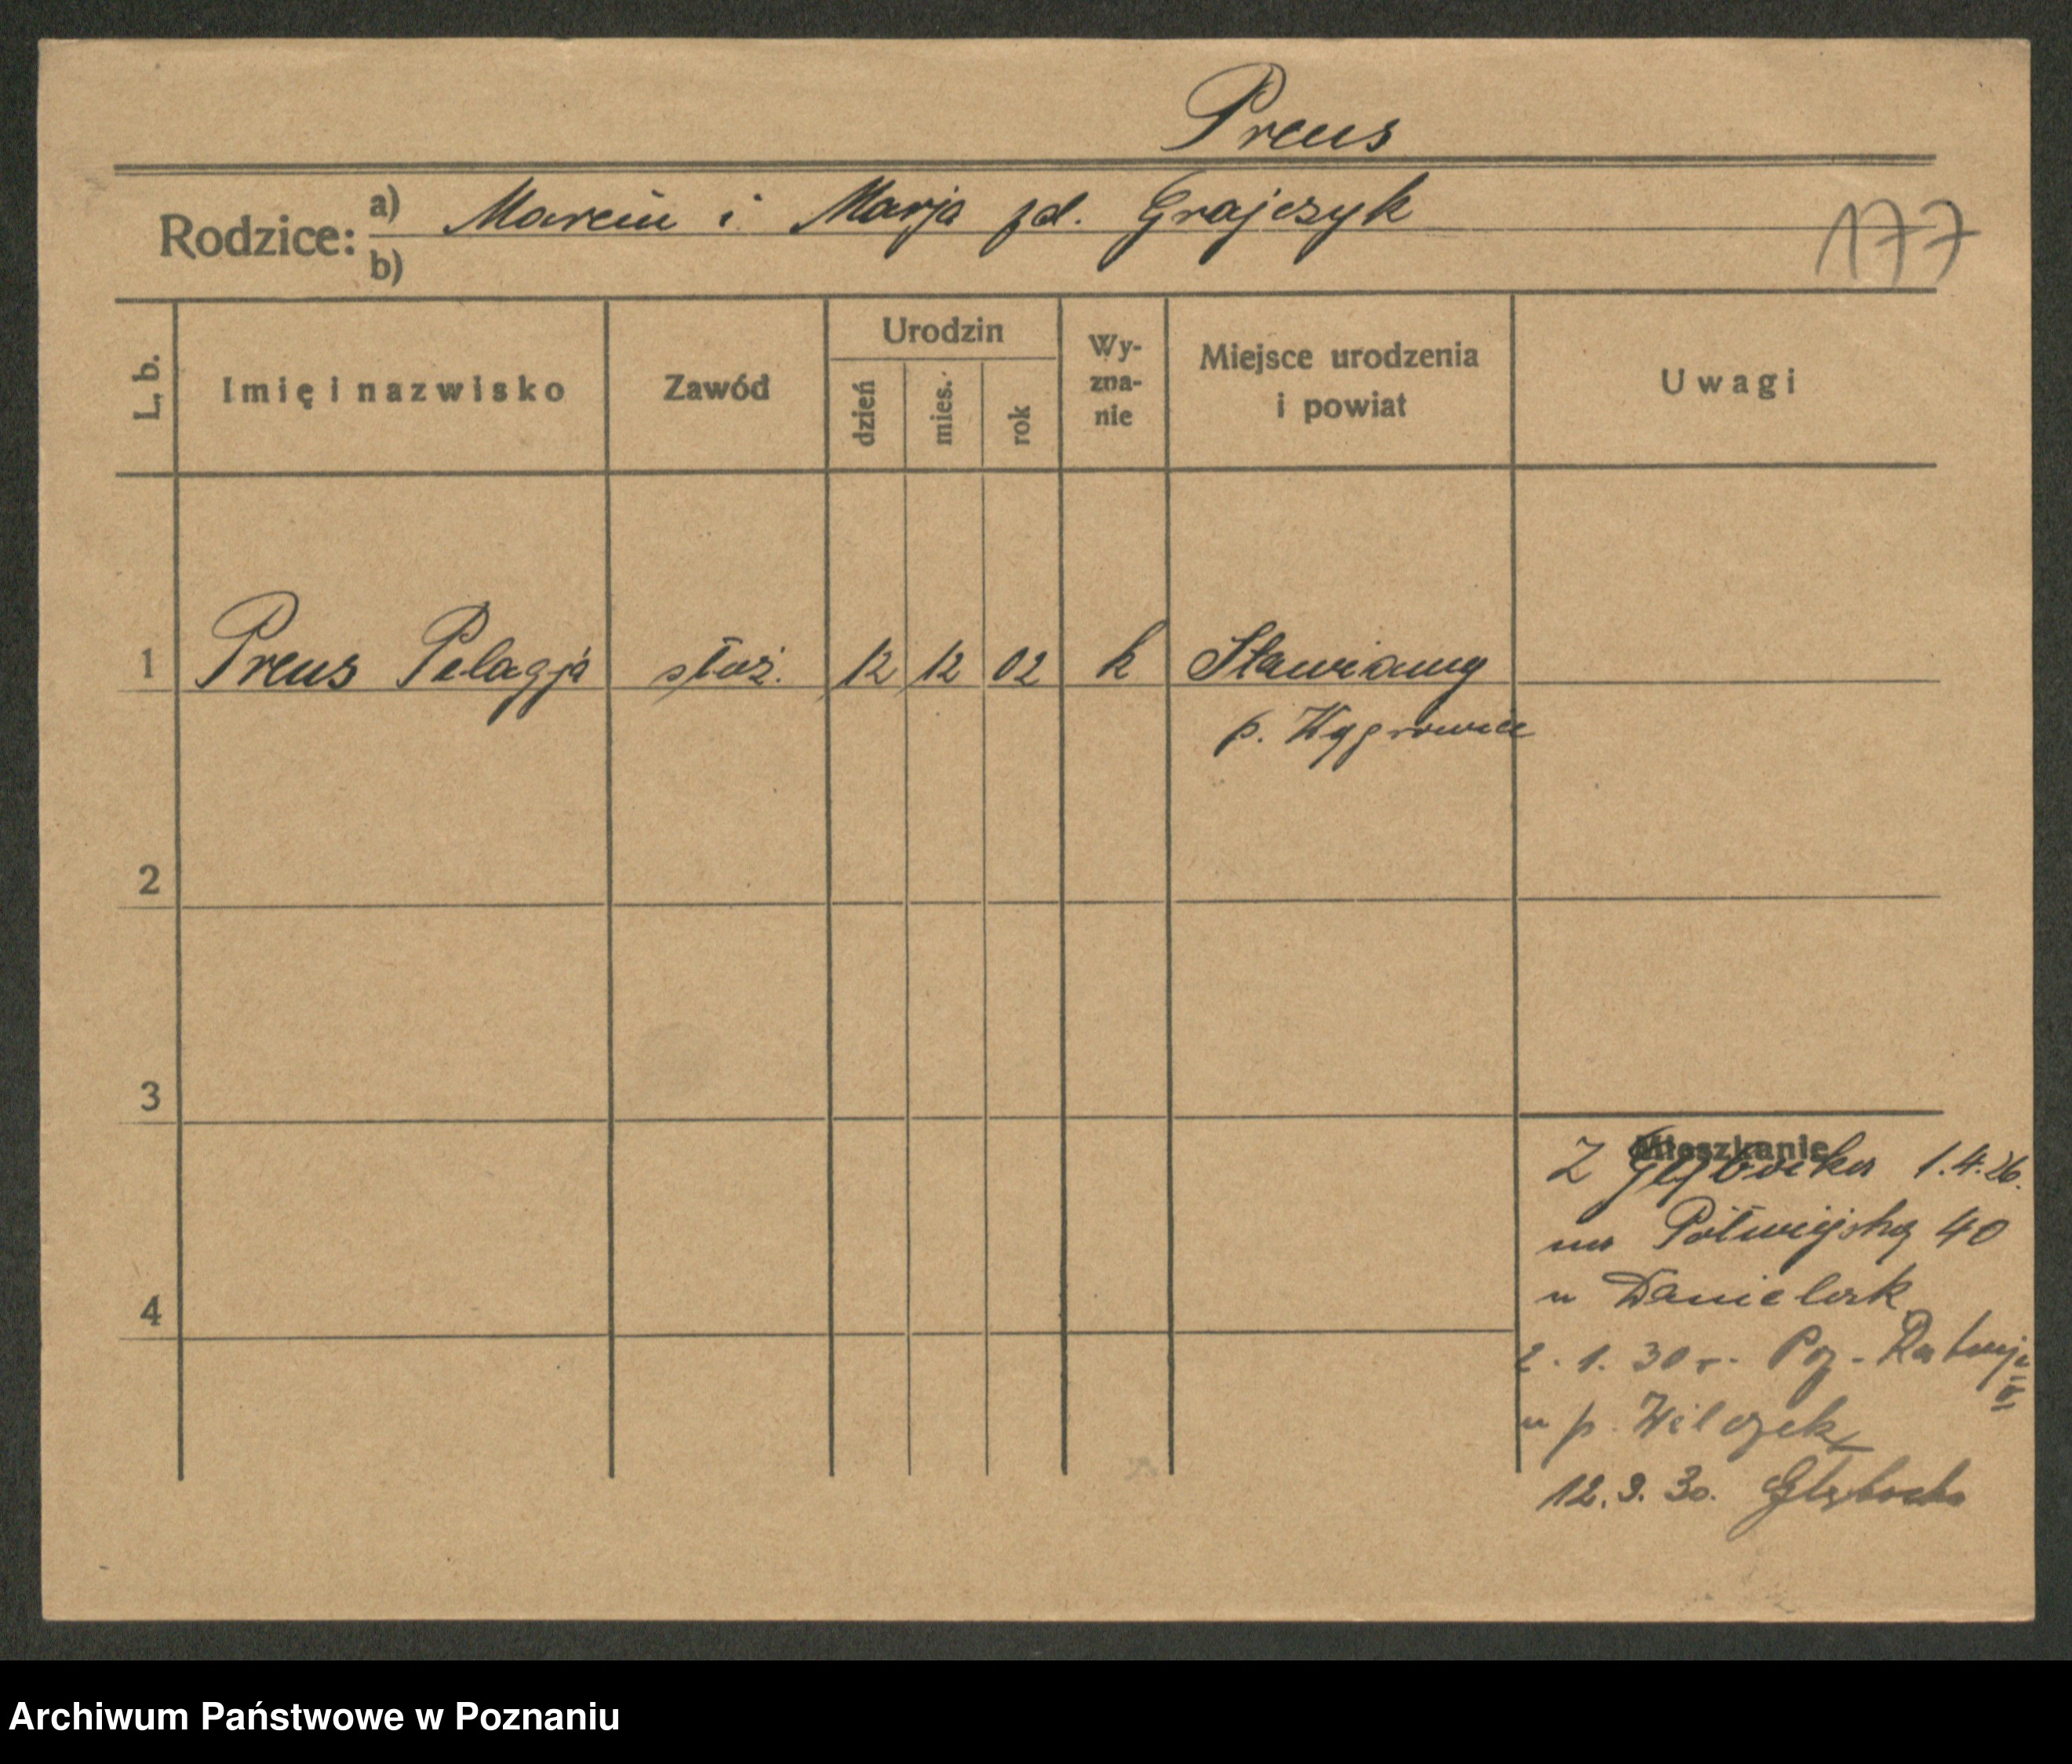 Preus
Rodzice: a) Marcin i Marja zd. Grajczyk
b)
177
L. b. Imię i nazwisko Zawód Urodzin dzień mies. rok Wy-zna-nie Miejsce urodzenia i powiat Uwagi
1 Preus Pelagja służ. 12 12 02 k Sławiany
p. Wągrowiec
2
3
Mieszkanie
Z Głęboka 1.4.26.
na Półwiejską 40
4
u Danielak
2.1.30 r. Poz-
u p. Wilczek
12.9.30. Głęboka
Archiwum Państwowe w Poznaniu